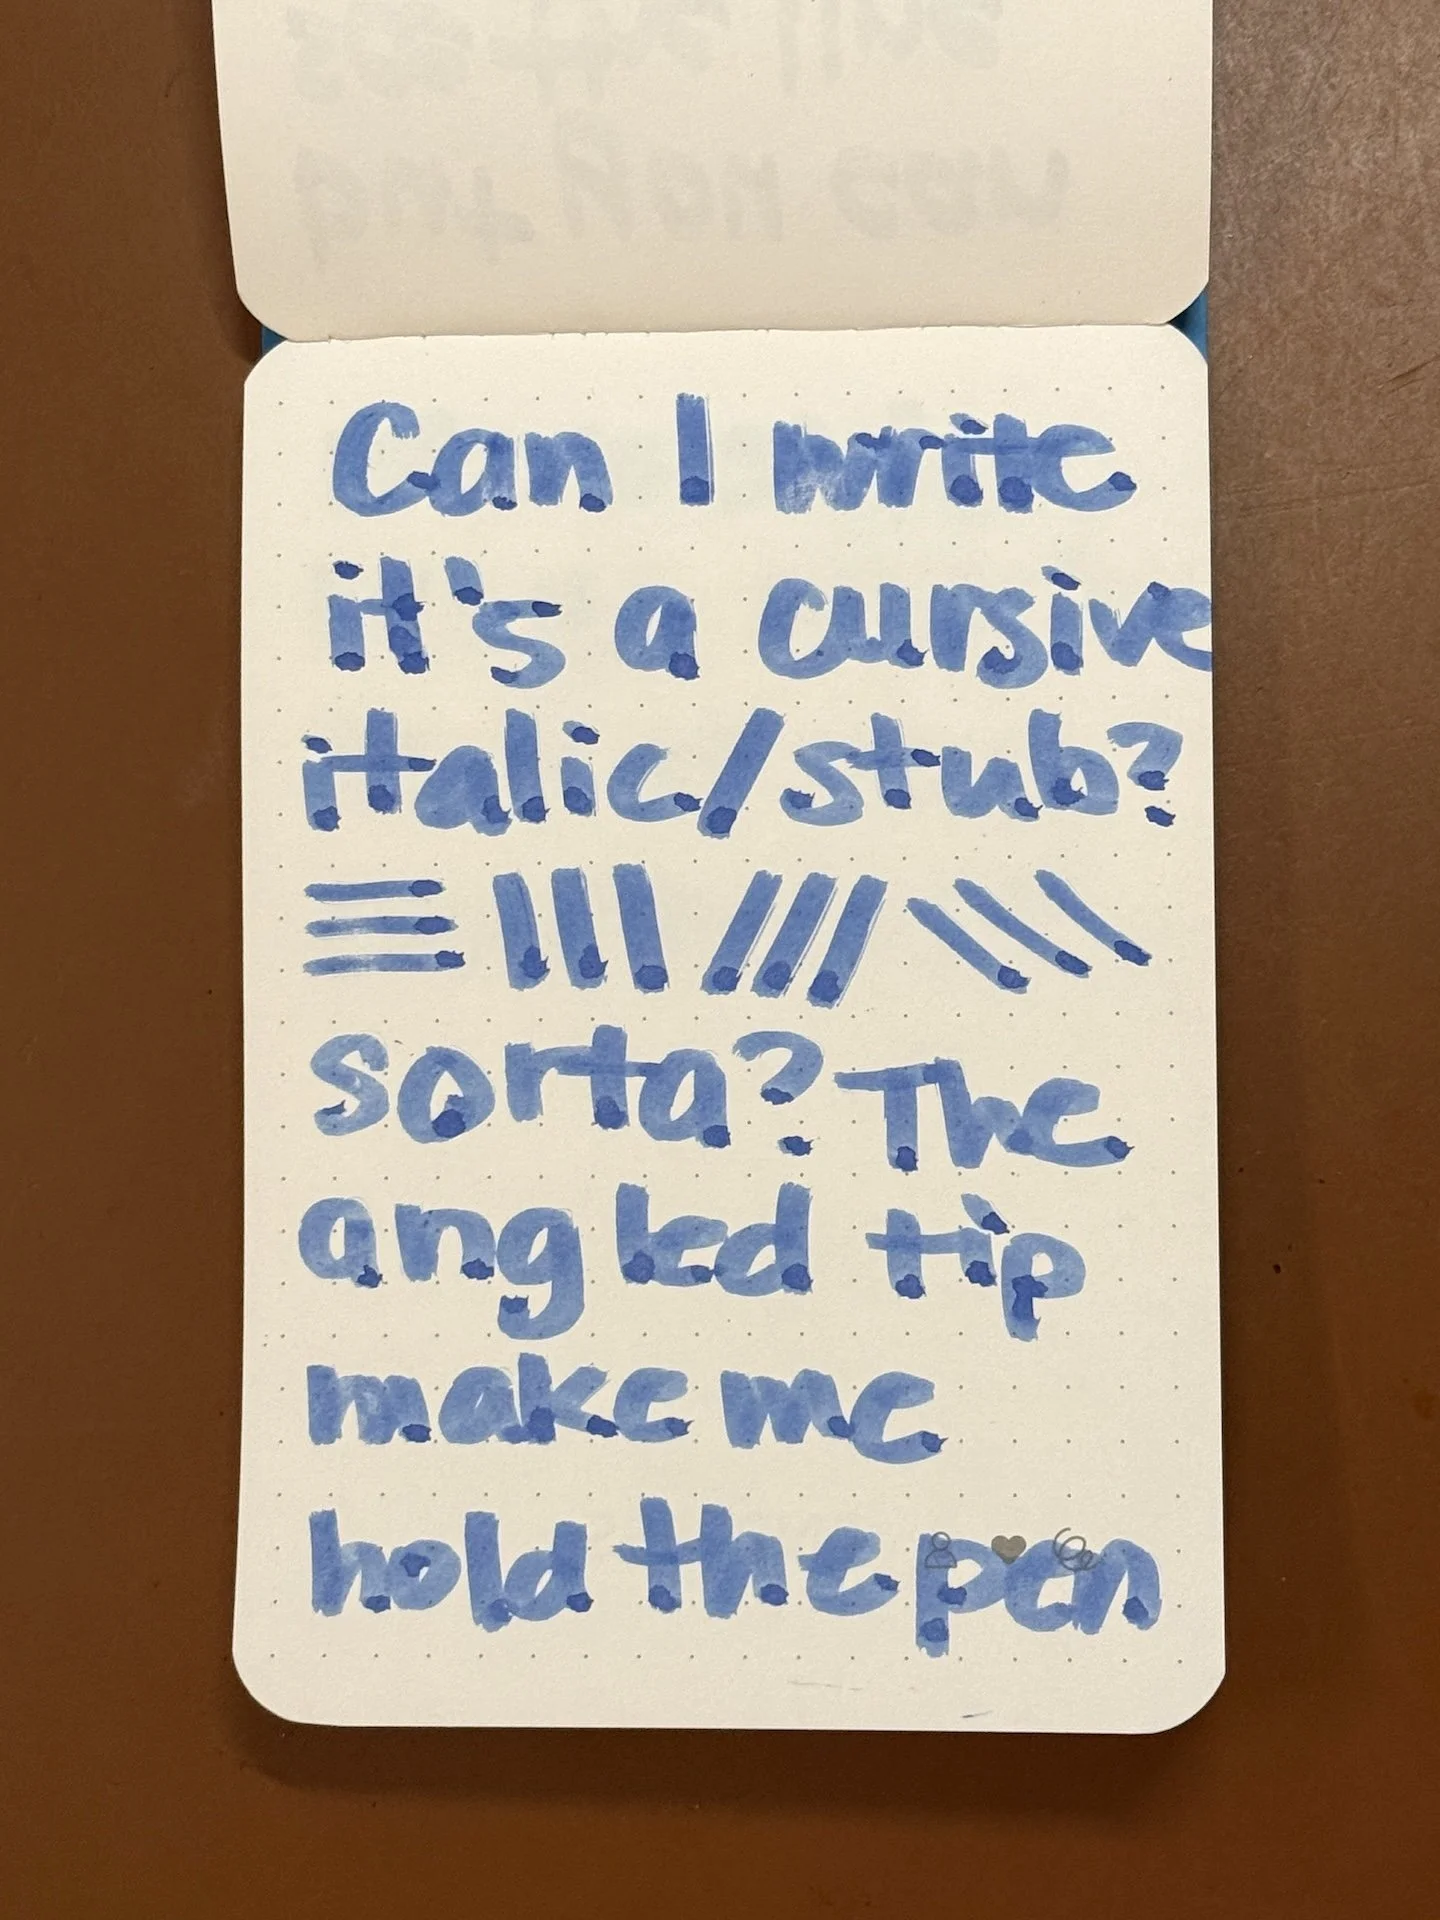 Can I write
it's a cursive
italic/stub?
sorta? The
angled tip
make me
hold the pen